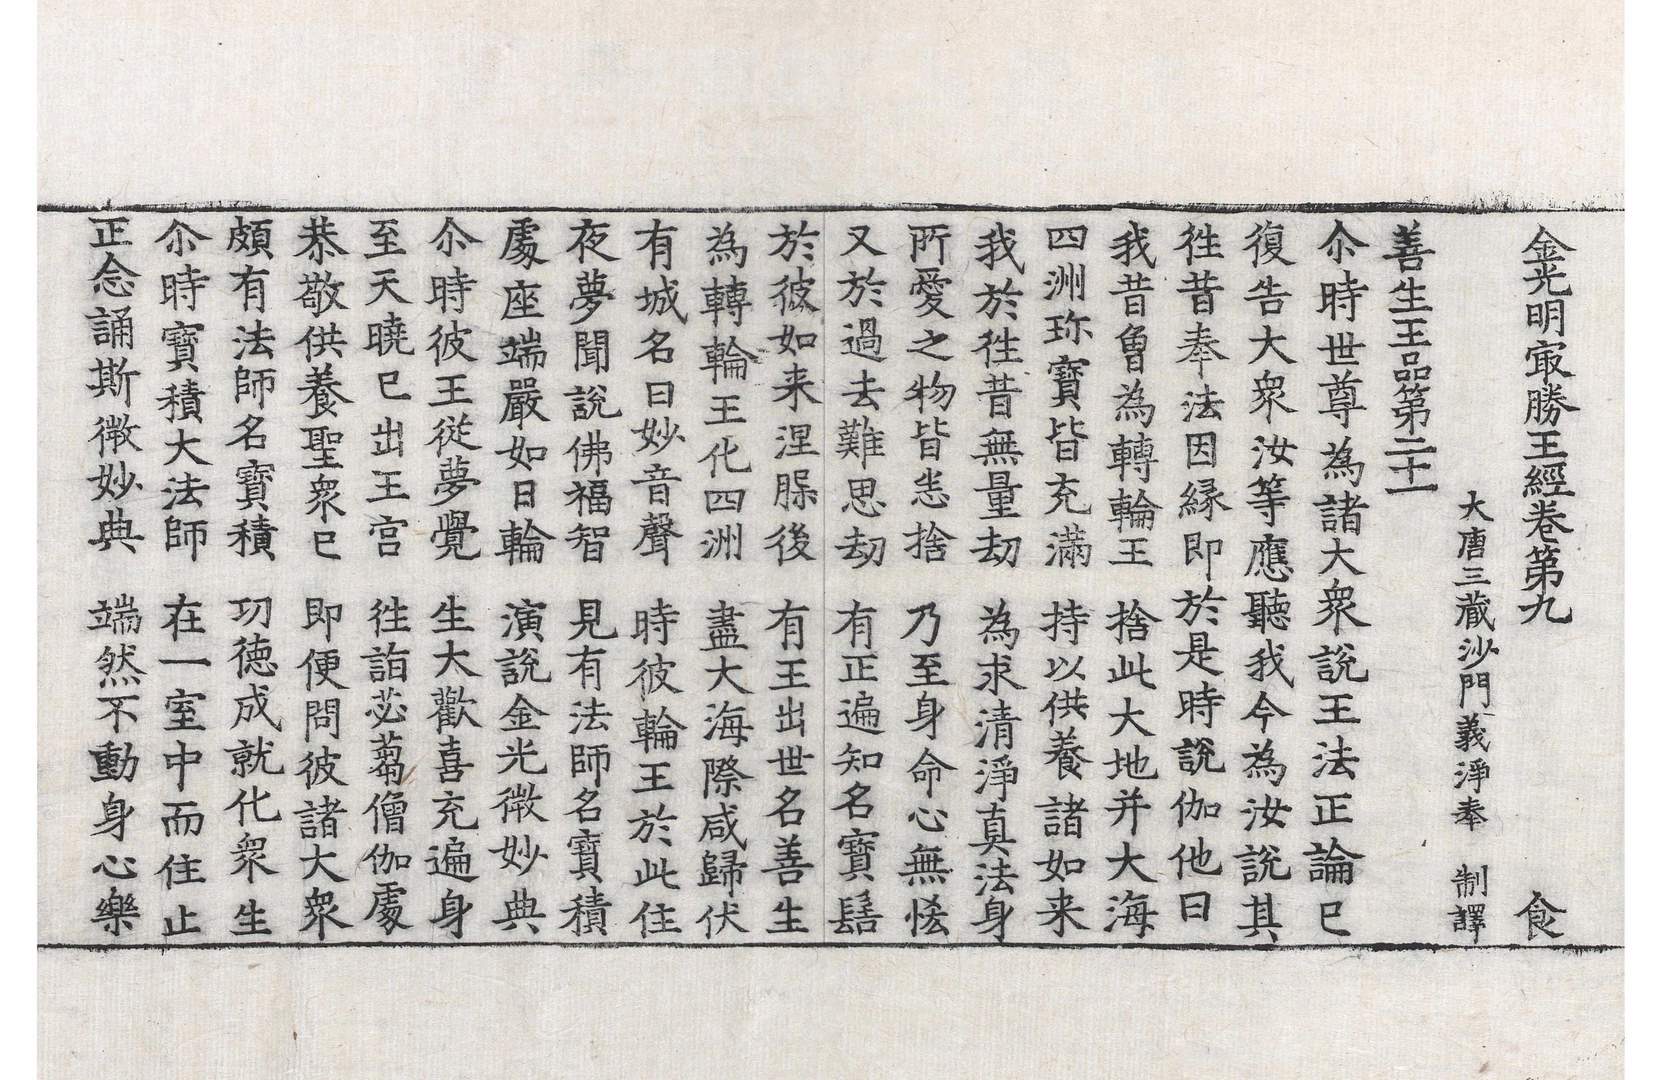 金光明㝡勝王經卷第九 食
大唐三藏沙門義淨奉 制譯
善生王品第二十一
尒時世尊為諸大衆說王法正論已
復告大衆汝等應聽我今為汝說其
徃昔奉法因縁即於是時說伽他曰
我昔曽為轉輪王 捨此大地并大海
四洲珎寶皆充滿 持以供養諸如来
我於徃昔無量劫 為求清淨真法身
所愛之物皆悉捨 乃至身命心無悋
又於過去難思劫 有正遍知名寶髻
於彼如来涅槃後 有王出世名善生
為轉輪王化四洲 盡大海際咸歸伏
有城名曰妙音聲 時彼輪王於此住
夜夢聞說佛福智 見有法師名寶積
處座端嚴如日輪 演說金光微妙典
尒時彼王從夢覺 生大歡喜充遍身
至天曉已出王宮 徃詣苾蒭僧伽處
恭敬供養聖衆已 即便問彼諸大衆
頗有法師名寶積 功德成就化衆生
尒時寶積大法師 在一室中而住止
正念誦斯微妙典 端然不動身心樂